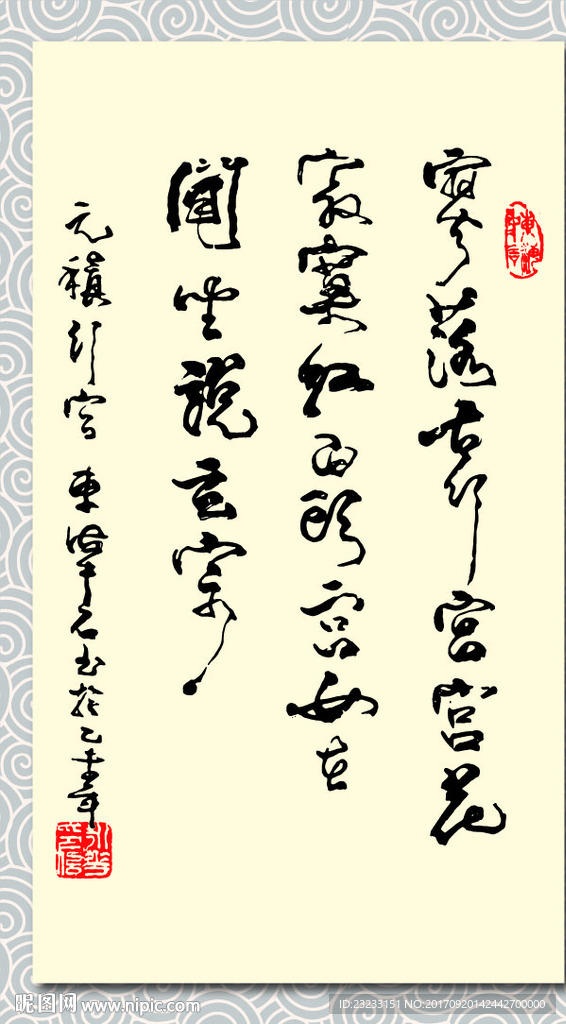 寥落古行宮宮花
寂寞紅白頭宮女在
閒坐說玄宗
元稹行宮 東石書於乙年
昵图网 www.nipic.com
ID:23233151 NO:20170920142442700000